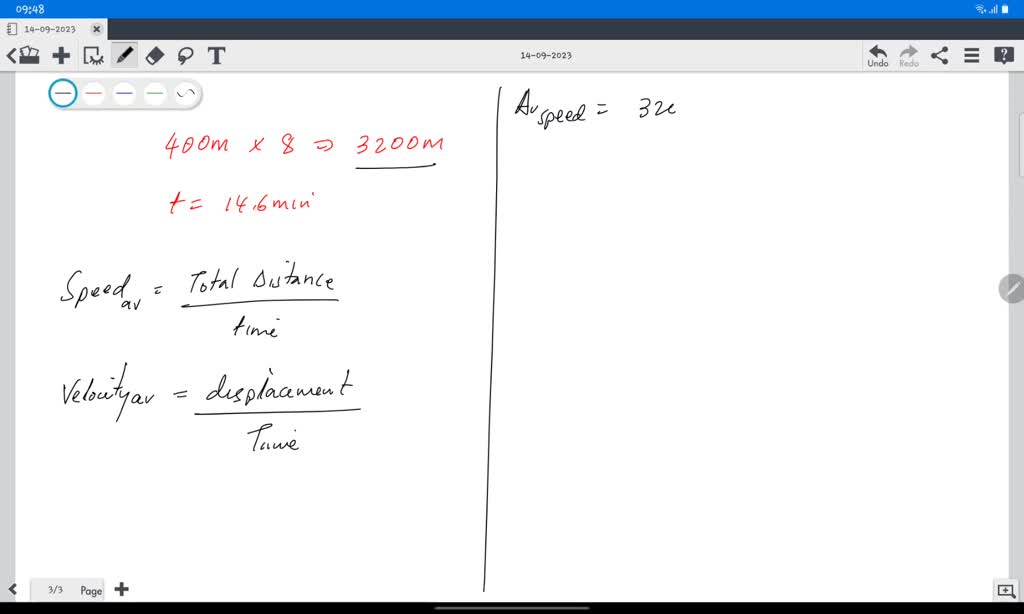 09:48
14-09-2023
T
14-09-2023
Undo
Redo
400m × 8 ⇒ 3200m
t = 14.6min
Speed av = Total Distance
time
Velocity av = displacement
Time
Av speed = 320
3/3 Page